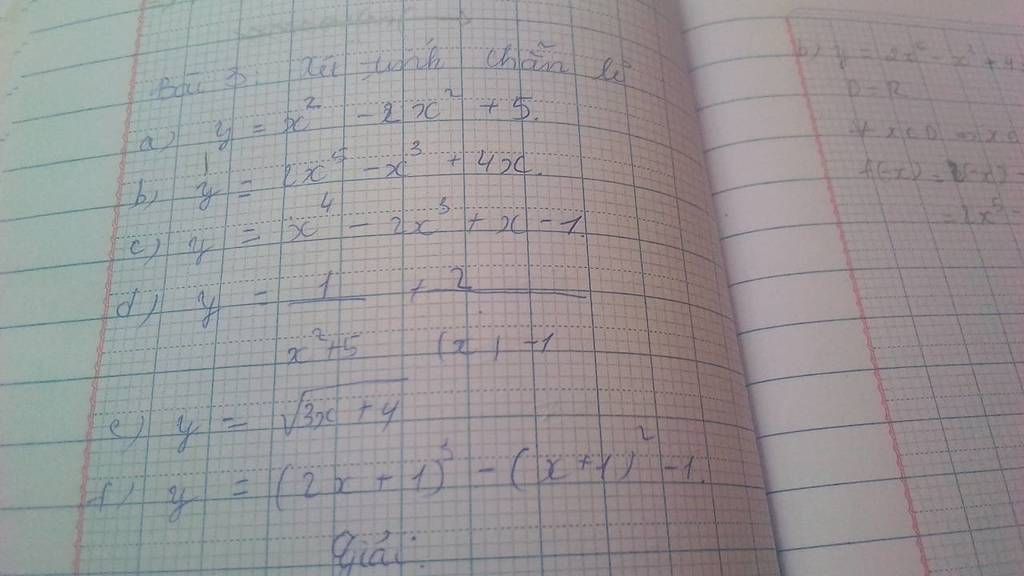 Bài 3: Xét tính chẵn lẻ
a) y = x² - 2x² + 5.
b) y = 2x⁵ - x³ + 4x.
c) y = x⁴ - 2x³ + x - 1.
d) y = 1 + 2
x²+5 |x| - 1
e) y = √3x + 4
f) y = (2x + 1)³ - (x+1)² - 1.
Giải:
b) y = 2x⁵ - x³ + 4
D = R
f(-x) = 2(-x)
= 2x⁵ -